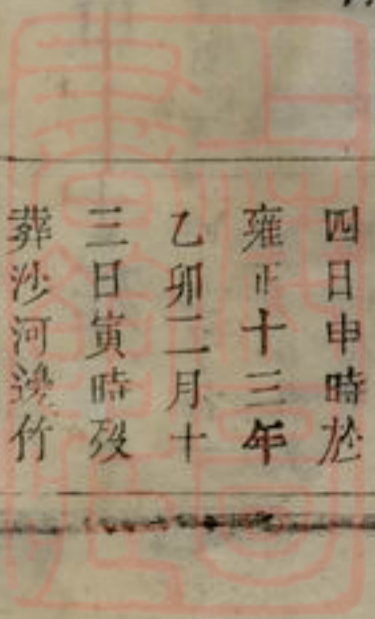 四日申時於
雍正十三年
乙卯二月十
三日寅時歿
葬沙河邊竹